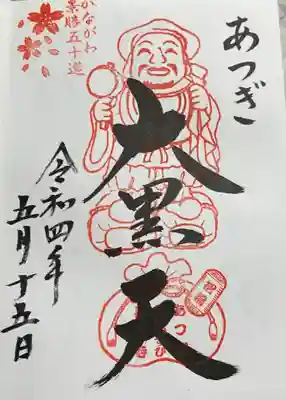 あつぎ
大黒天
令和四年
五月十五日
かながわ
景勝五十選